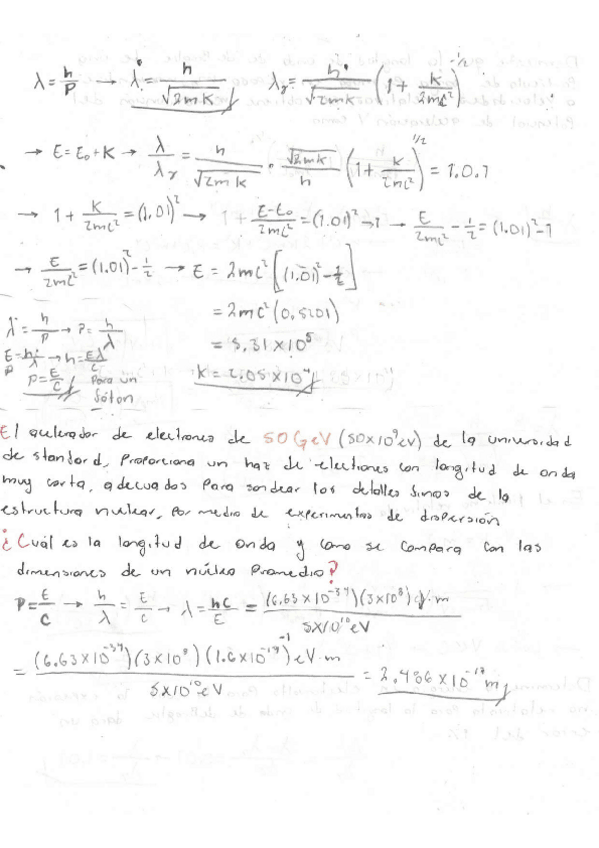 λ = h/p → λ = h/√(2mK)    λr = h/√(2mK) (1 + K/2mc²)^(-1/2)
→ E = E₀ + K → λ/λr = h/√(2mK) · √(2mK)/h (1 + K/2mc²)^(1/2) = 1.0.1
→ 1 + K/2mc² = (1.01)² → 1 + (E-E₀)/2mc² = (1.01)² → E/2mc² - 1/2 = (1.01)² - 1
→ E/2mc² = (1.01)² - 1/2 → E = 2mc² [(1.01)² - 1/2]
= 2mc² (0,5201)
λ = h/p → P = h/λ
= 5,31 × 10⁵
E = hc/λ → h = Eλ/c
P = E/c Para un fóton
El acelerador de electrones de 50 GeV (50×10⁹ eV) de la universidad
de stanford, Proporciona un haz de electrones con longitud de onda
muy corta, adecuados Para sondear los detalles finos de la
estructura nuclear, Por medio de experimentos de dispersión
¿Cuál es la longitud de onda y como se compara con las
dimensiones de un núcleo Promedio?
P = E/c → h/λ = E/c → λ = hc/E = (6.63×10⁻³⁴)(3×10⁸) J·m / 5×10¹⁰ eV
= (6.63×10⁻³⁴)(3×10⁸)(1.6×10⁻¹⁹)⁻¹ eV·m / 5×10¹⁰ eV = 2,486×10⁻¹⁷ m